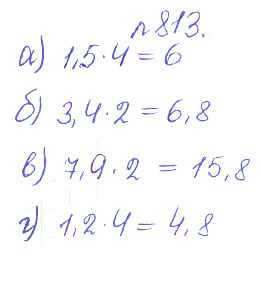 №813.
а) 1,5·4 = 6
б) 3,4·2 = 6,8
в) 7,9·2 = 15,8
г) 1,2·4 = 4,8